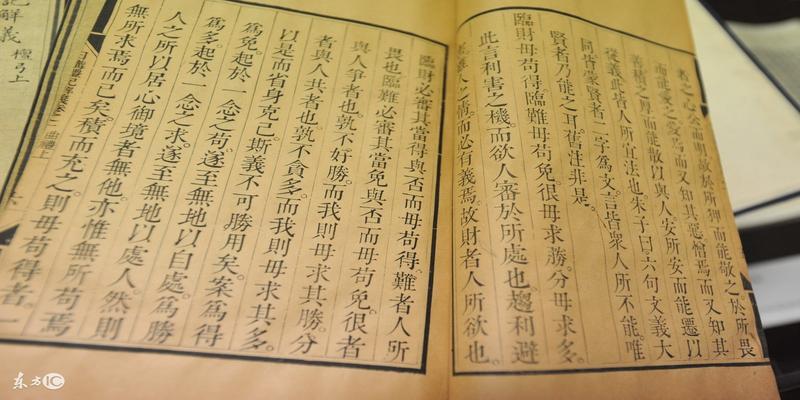 之心公而明故於所狎而能敬之於所畏
而能愛之愛焉而又知其惡憎焉而又知其
善積之厚而能散以與人安所安而能遷以
從義此皆人所宜法也朱子曰六句文義大
同皆蒙賢者二字爲文言皆衆人所不能唯
賢者乃能之耳舊注非是。
臨財毋苟得臨難毋苟免很毋求勝。分毋求多。
此言利害之機。而欲人審於所處也。趨利避
人之情。而必有義焉。故財者人所欲也。
臨財必審其當得與否而毋苟得。難者人所
畏也臨難必審其當免與否而毋苟免。很者
與人爭者也。孰不好勝。而我則毋求其勝。分
者與人共者也孰不貪多。而我則毋求其多。
以是而省身克己。斯義不可勝用矣。案爲得
爲免。起於一念之苟。遂至無地以自處。爲勝
爲多。起於一念之求。遂至無地以處人然則
人之所以居心御境者無他。亦惟無所苟焉
無所求焉。而已矣。積而充之。則毋苟得者。
曲禮上
記解義 檀弓上
东方IC